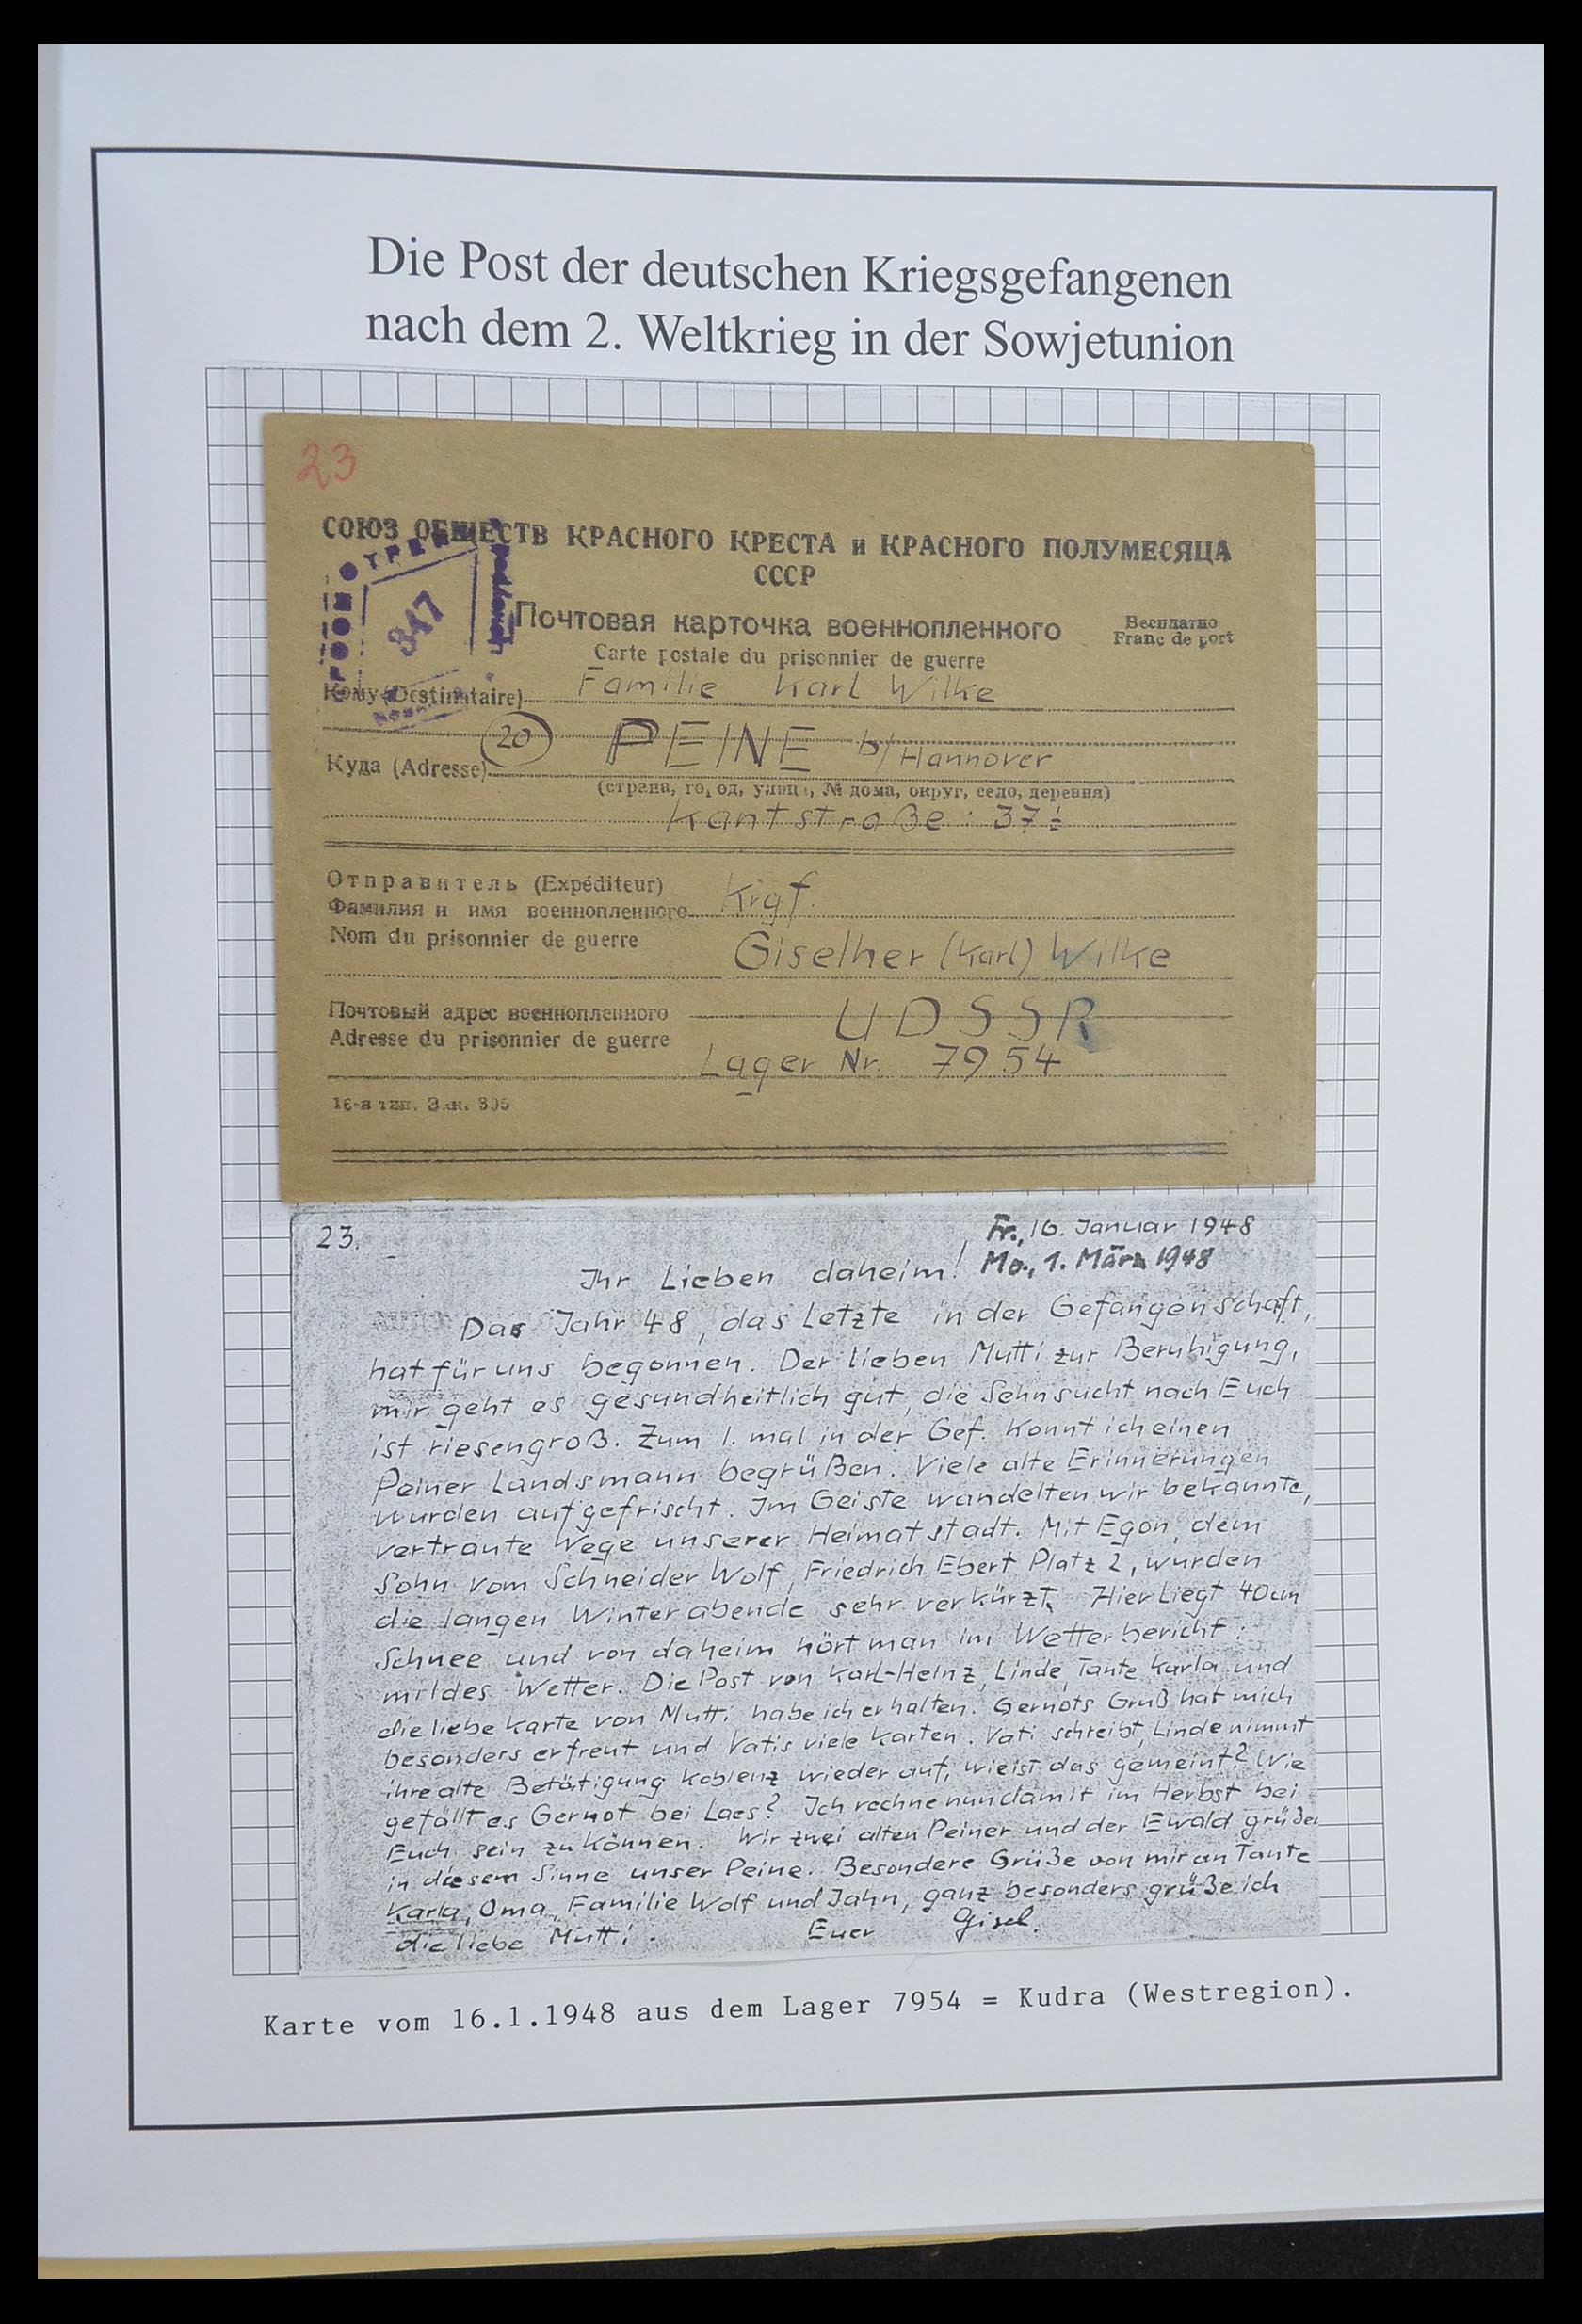 Die Post der deutschen Kriegsgefangenen
nach dem 2. Weltkrieg in der Sowjetunion
23
СОЮЗ ОБЩЕСТВ КРАСНОГО КРЕСТА и КРАСНОГО ПОЛУМЕСЯЦА
СССР
347
Почтовая карточка военнопленного
Бесплатно
Franc de port
Carte postale du prisonnier de guerre
Кому (Destinataire) Familie Karl Wilke
20 PEINE b/Hannover
Куда (Adresse)
(страна, город, улица, № дома, округ, село, деревня)
Kantstraße: 37½
Отправитель (Expéditeur)
Фамилия и имя военнопленного Krgf.
Nom du prisonnier de guerre
Giselher (Karl) Wilke
Почтовый адрес военнопленного UDSSR
Adresse du prisonnier de guerre
Lager Nr. 7954
16-я тип. Зак. 395
23. Fr., 16. Januar 1948
Ihr Lieben daheim! Mo., 1. März 1948
Das Jahr 48, das Letzte in der Gefangenschaft,
hat für uns begonnen. Der lieben Mutti zur Beruhigung,
mir geht es gesundheitlich gut, die Sehnsucht nach Euch
ist riesengroß. Zum 1. mal in der Gef. konnt ich einen
Peiner Landsmann begrüßen. Viele alte Erinnerungen
wurden aufgefrischt. Im Geiste wandelten wir bekannte,
vertraute Wege unserer Heimatstadt. Mit Egon, dem
Sohn vom Schneider Wolf, Friedrich Ebert Platz 2, wurden
die langen Winterabende sehr verkürzt. Hier liegt 40cm
Schnee und von daheim hört man im Wetterbericht:
mildes Wetter. Die Post von Karl-Heinz, Linde, Tante Karla und
die liebe Karte von Mutti habe ich erhalten. Gernots Gruß hat mich
besonders erfreut und Vatis viele Karten. Vati schreibt, Linde nimmt
ihre alte Betätigung Koblenz wieder auf, wie ist das gemeint? Wie
gefällt es Gernot bei Laes? Ich rechne nun damit im Herbst bei
Euch sein zu können. Wir zwei alten Peiner und der Ewald grüßen
in diesem Sinne unser Peine. Besondere Grüße von mir an Tante
Karla, Oma, Familie Wolf und Jahn, ganz besonders grüße ich
die liebe Mutti. Euer Gisel.
Karte vom 16.1.1948 aus dem Lager 7954 = Kudra (Westregion).